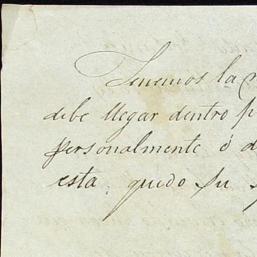 Tenemos la
debe llegar dentro p
personalmente ó d
esta, quedo su